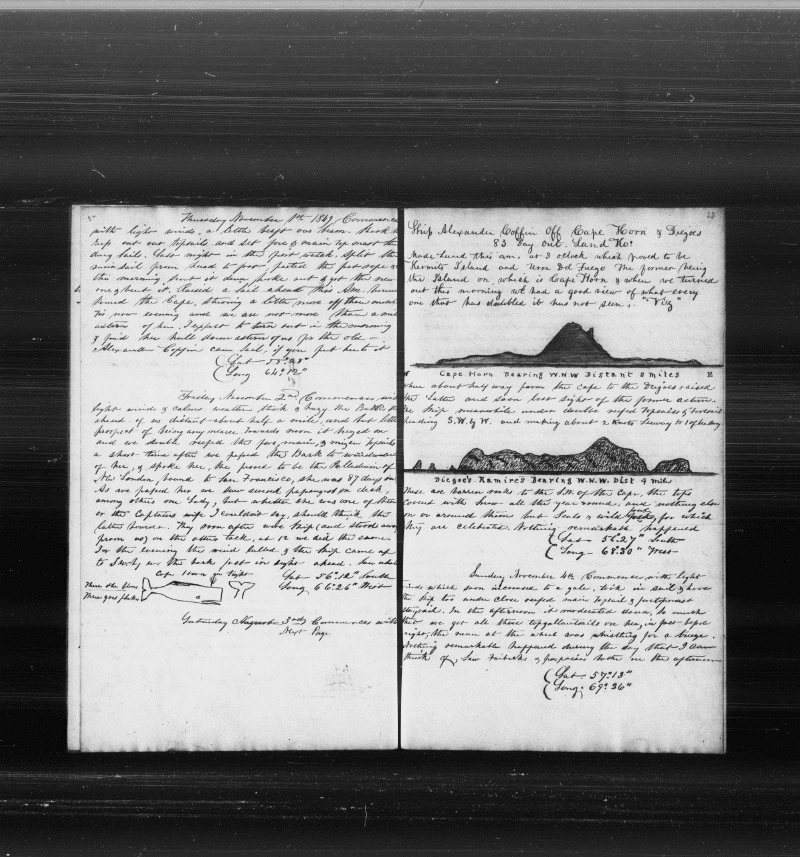 Thursday November 1st 1849 Commences
with light winds, a little swept our beam. Shook the
reefs out our topsails and set fore & main top mast stud
ding sails. Last night in the first watch, split the
main sail from head to foot parted the foot rope &
this morning sent it down
one & bent it. Raised a sail ahead this Am bound
round the Cape, strung a little more off than
Tis now evening and we are not more than a mile
astern of her. I expect to turn out in the morning
& find her hull down astern of us for the old
Alexander Coffin can sail, if you put her to it
Lat 55°.48"
Long 64°.12"
Friday November 2nd Commences with
light winds & calms weather thick & hazy the Bark still
ahead of us distant about half a mile, and but little
prospect of being any nearer. Towards noon it breezed on
and we double reefed the fore, main, & mizen topsails
a short time after we passed the Bark to windward
of her, & spoke her, she proved to be the Palladium of
New London bound to San Francisco, she was 87 days out
As we passed her we saw several passengers on deck,
among others one Lady, but whether she was one of the
or the Captains wife I couldn't say, should think the
latter however. They soon after wore ship (and stood away
from us) on the other tack, at 12 we did the same.
In the evening the wind lulled & the ship came up
to S.W by W the Bark just in sight ahead.
Cape Horn Tiger
There she blows
There goes flukes
Lat 56°.12" South
Long 66.26" West
Saturday November 3rd Commences with
Next Page
23
Ship Alexander Coffin Off Cape Horn & Diegoes
83 day out. Land Ho!
Made Land this am. at 3 oclock which proved to be
Hermits Island and Terra Del Fuego The former being
the Island on which is Cape Horn & when we turned
out this morning we had a good view of what every
one that has doubled it has not seen. "Viz"
Cape Horn Bearing W.N.W Distant 8 miles
When about half way from the Cape to the Diegoes raised
the latter and soon lost sight of the former astern.
The Ship meanwhile under double reefed Topsails & Foresail
heading S.W. by W. and making about 2 knots Leeway to 1 of headway
Diegoe's Ramires Bearing W.N.W. Dist 4 miles
These are barren rocks to the S.W. of the Cape, the tops
covered with snow all the year round, and nothing else
on or around them but Seals & wild fowls, for which
they are celebrated. Nothing remarkable happened
Lat 56°.27" South
Long 68°.30" West
Sunday November 4th Commences, with light
winds which soon increased to a gale, took in sail & hove
the ship too under close reefed main Topsail & foretopmast
staysail. In the afternoon it moderated down, so much
that we got all three topgallantsails on her, in fact before
night, the man at the wheel was whistling for a breeze.
Nothing remarkable happened during the day that I can
think of, Saw Finbacks & porpoises both in the afternoon
Lat 57°.13"
Long 69°.36"